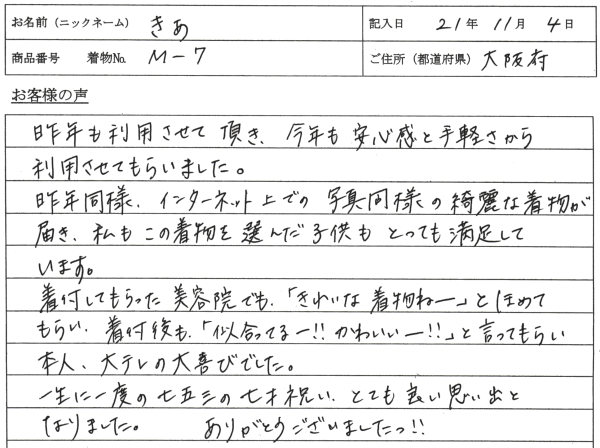 お名前（ニックネーム） きあ 記入日 21年 11月 4日
商品番号 着物No. M-7 ご住所（都道府県） 大阪府
お客様の声
昨年も利用させて頂き、今年も安心感と手軽さから
利用させてもらいました。
昨年同様、インターネット上での写真同様の綺麗な着物が
届き、私もこの着物を選んだ子供もとっても満足して
います。
着付してもらった美容院でも、「きれいな着物ねー」とほめて
もらい、着付後も、「似合ってるー!!かわいいー!!」と言ってもらい
本人、大テレの大喜びでした。
一生に一度の七五三の七才祝い、とても良い思い出と
なりました。 ありがとうございましたっ!!